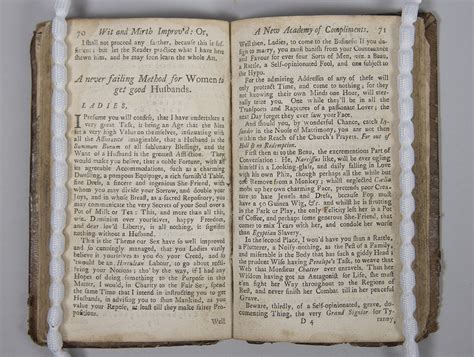 70 Wit and Mirth Improv'd: Or,
I shall not proceed any farther, because this is sufficient;
but let the Reader practice what I have here
shewn him, and he may soon learn the whole Art.
A never failing Method for Women to
get good Husbands.
LADIES,
I Presume you will confess, that I have undertaken a
very great Task, it being an Age that the Men
set a very high Value themselves, insinuating with
all the Assurance imaginable, that a Husband is the
Summum Bonum of all sublunary Blessings, and the
Want of a Husband is the greatest Affliction. They
would make you believe, that a noble Fortune, with all
its agreeable Accommodations, such as a charming
Dwelling, a pompous Equipage, a rich furnish'd Table,
fine Dress, a sincere and ingenious She-Friend, with
whom you may divide your Sorrow, and double your
Joys, and in whose Breast, as a sacred Repository, you
may commemorate the very Secrets of your Soul over a
Pot of Milk or Tea: This, and more than all this,
Dominion over yourselves, happy Freedom,
and dear lov'd Liberty, is all nothing, it signifies
nothing without a Husband.
This is the Theme our Sex have so well improved
and so cunningly managed, that you Ladies really
believe it yourselves as you do your Creed, and so
'twould be an Herculean Labour, to go about debasing
your Notions; by the way, if I had any
Hopes of doing something to the Purpose in this
Matter, I would, in Charity to the Fair Sex, spend
the same Time that I intend in instructing you to get
Husbands, in advising you to shun Mankind, as you
value your Repose, at least till they make fairer Propositions.
Well
A New Academy of Compliments. 71
Well then, Ladies, to come to the Business: If you design
to marry, you must banish from your Countenance
and Favour for ever four Sorts of Men, viz. a Beau,
a Rattle, a Self-opinionated Fool, and one subject to
the Hypo.
For the admiring Addresses of any of these will
only protract Time, and come to nothing; for they
not knowing their own Minds one Hour, will eternally
teize you. One while they'll be in all the
Transports and Raptures of a passionate Lover; the
next Day forget they ever saw your Face.
And should you, by wonderful Chance, catch Lysander
in the Noose of Matrimony, you are not then
within the Reach of the Church's Prayers. For out of
Hell is no Redemption.
First then as to the Beau, the excrementious Part of
Conversation: He, Narcissus like, will be ever ogling
himself in a Looking-glass, and daily falling in Love
with his own Phiz, though perhaps all the while but
one Remove from a Monkey; whilst neglected
mobs up her own charming Face, pretends poor Creature
to hate Jewels and Dress, because Fop must
have a 50 Guinea Wig, &c. and whilst he is strutting
in the Park or Play, the only Felicity left her is a Pot
of Coffee, and perhaps some generous She-Friend, that
comes to mix Tears with her, and condole worse
than Egyptian Slavery.
In the second Place, I wou'd have you shun a Rattle,
a Flutterer, a Noisy-nothing, as the Pest of a Family,
and miserable is the Body that has such a giddy Head
the prudent Wife having Penelope's Task, to weave that
Web that Monsieur Chatter ever unweaves. Than her
Wisdom having got an Antagonist for an Ass; the Man
must fight her Way throughout the Regions of
Rest, and never find Comfort till her End in her peaceful
Grave.
Beware, thirdly, of a Self-opinionated, grave, documenting
Thing, the very Grand Signior for Tyranny,
D 4